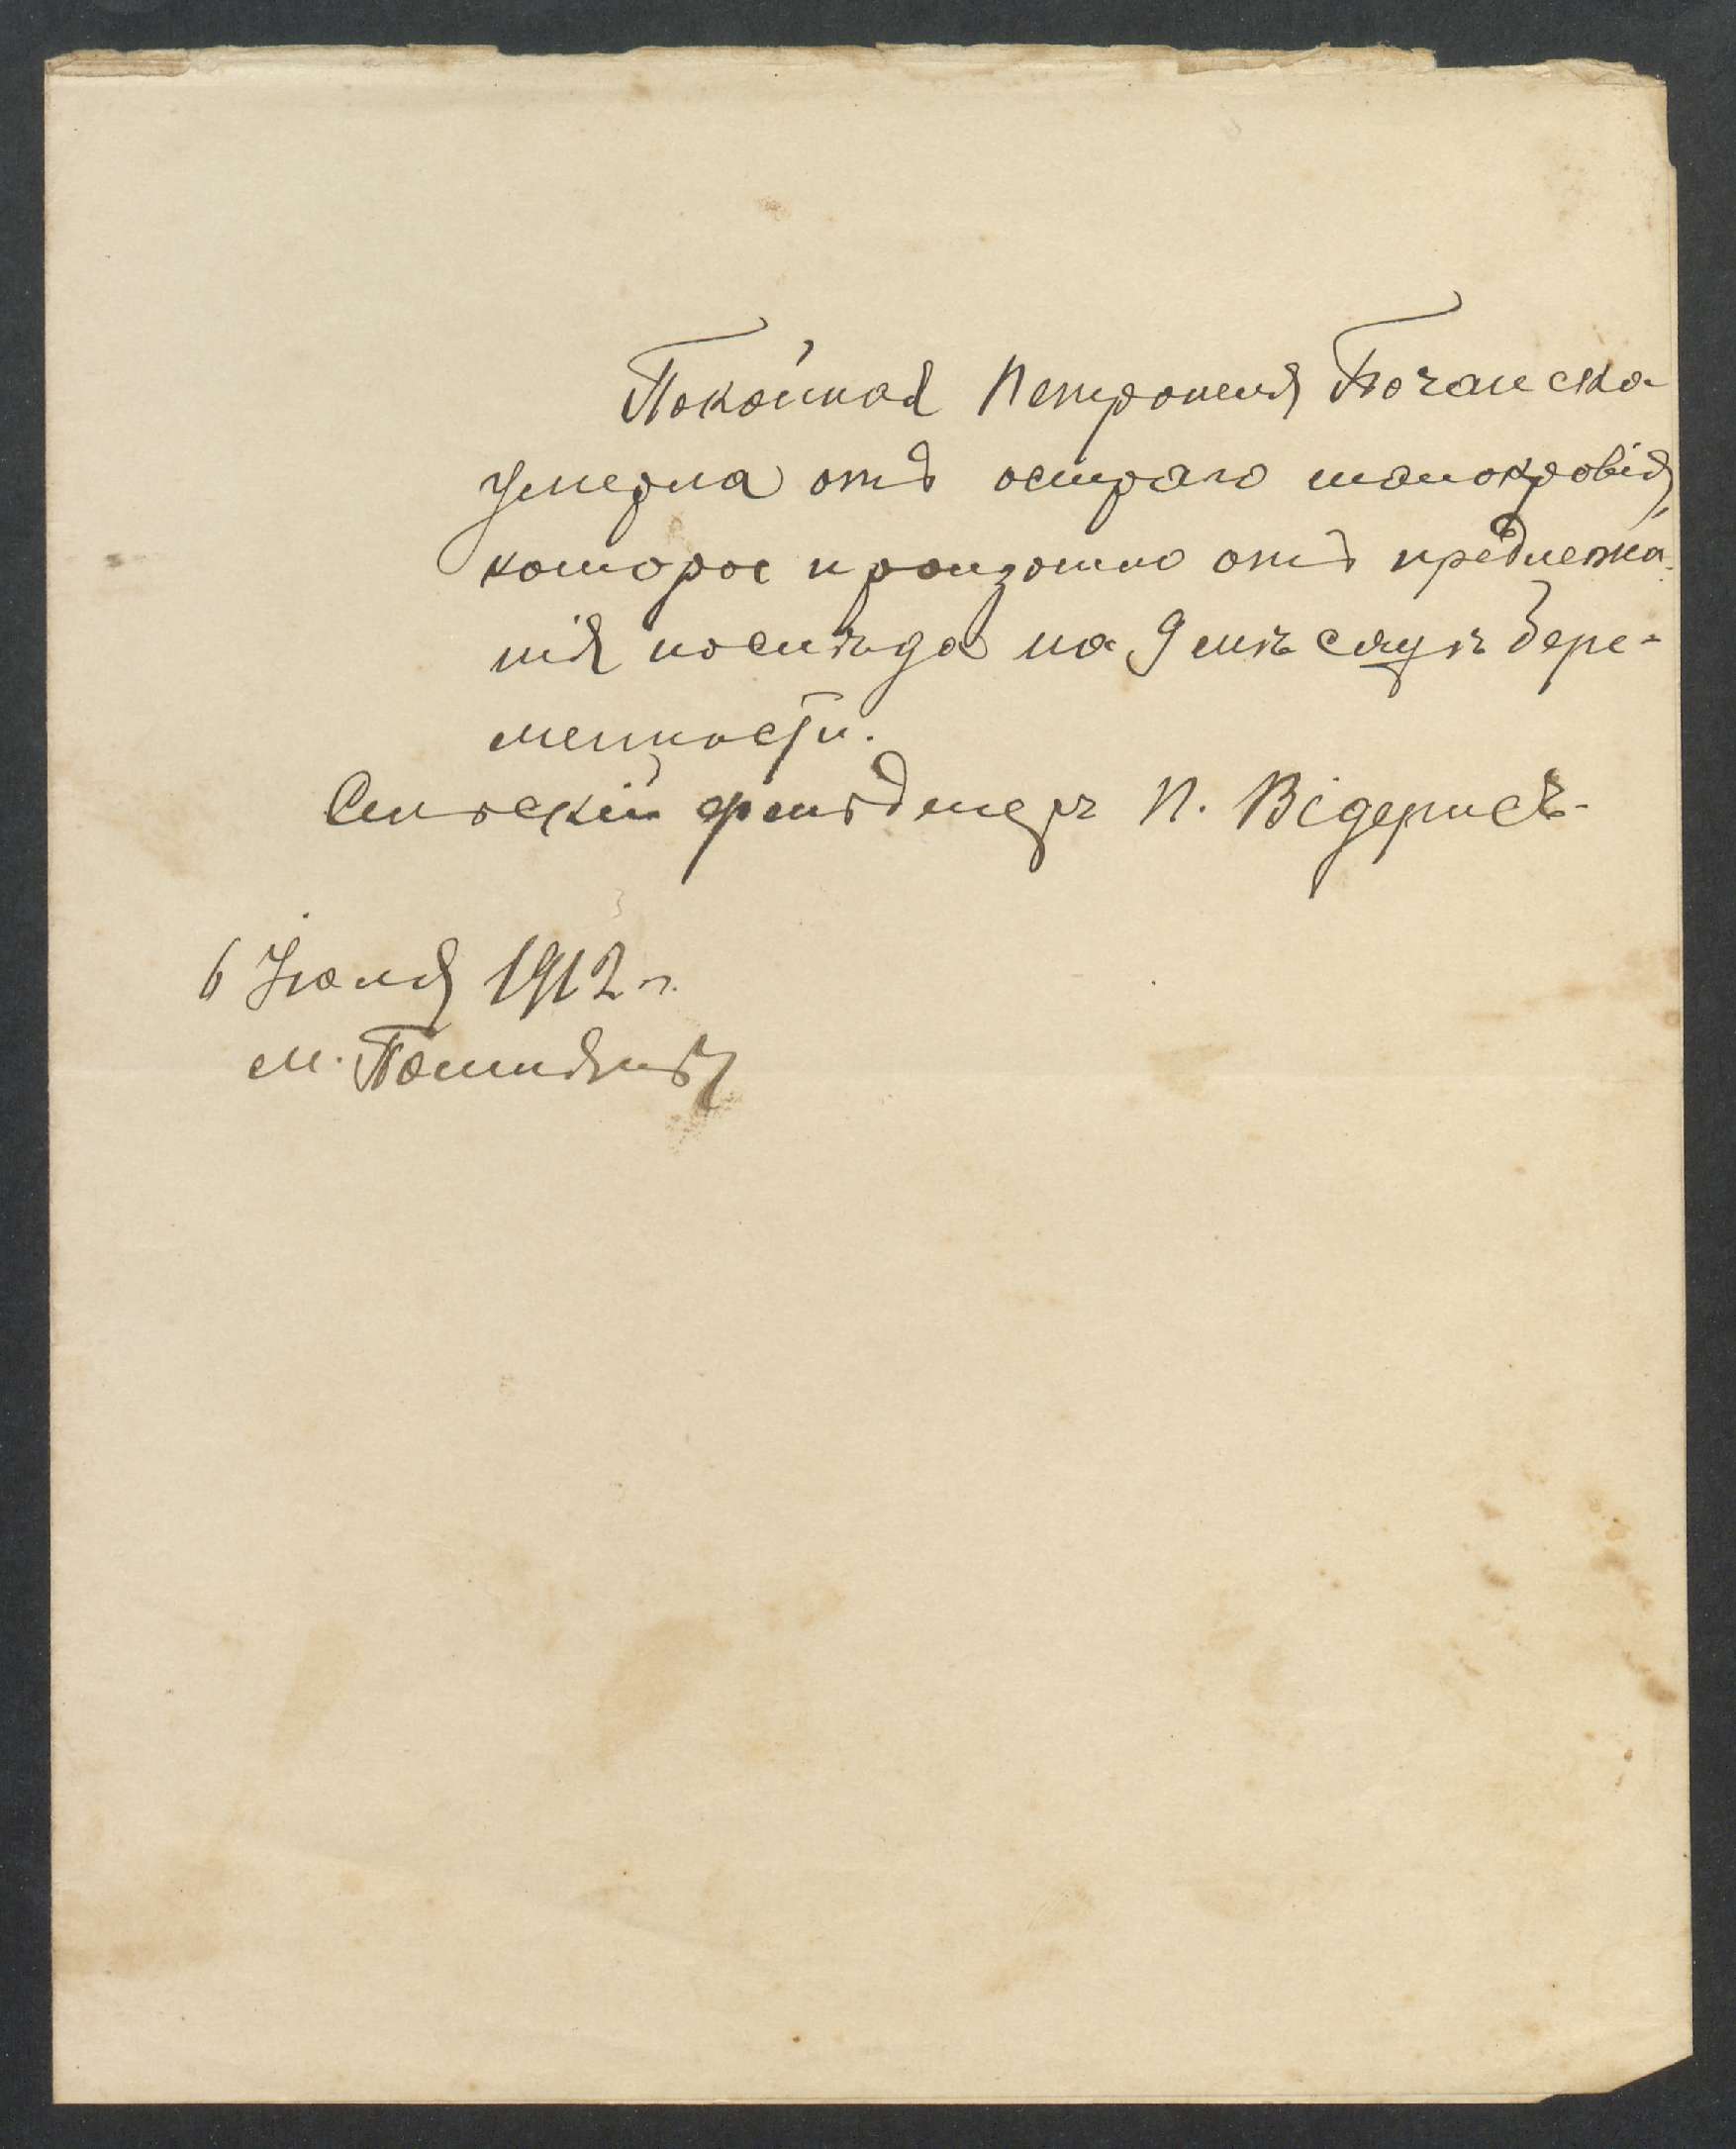 Покойная Петронеля Бочанска-
умерла отъ остраго малокровія,
которое произошло отъ предлежа-
нія послѣда на 9 мѣсяцѣ бере-
менности.
Сельскій фельдшеръ П. Відерисъ-
6 Іюля 1912 г.
м.